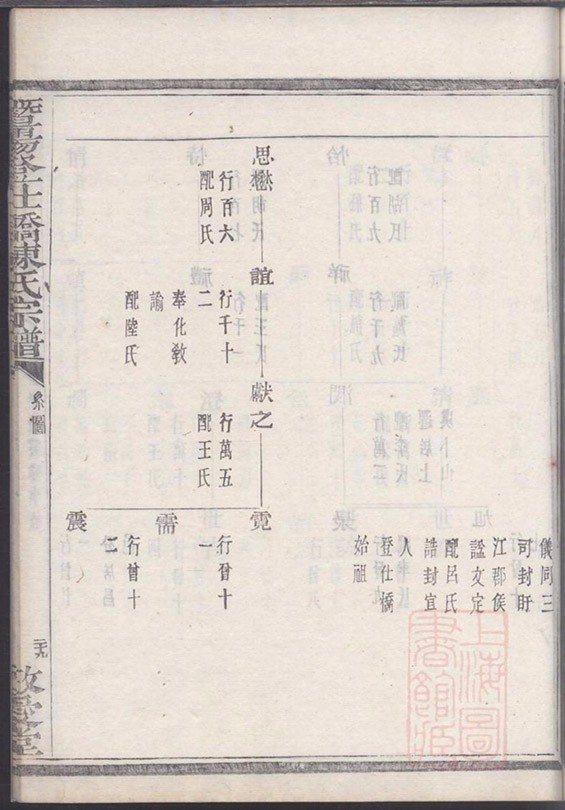 儀同三
司封盱
江郡侯
諡文定
配呂氏
誥封宜
人
登仕橋
始祖
思懋
行百六
配周氏
誼
行千十
二
奉化教
諭
配陸氏
獻之
行萬五
配王氏
霓
行曾十
一
需
行曾十
震
暨陽登仕橋陳氏宗譜
系圖
二十九
敦睦堂
上海圖
書館藏